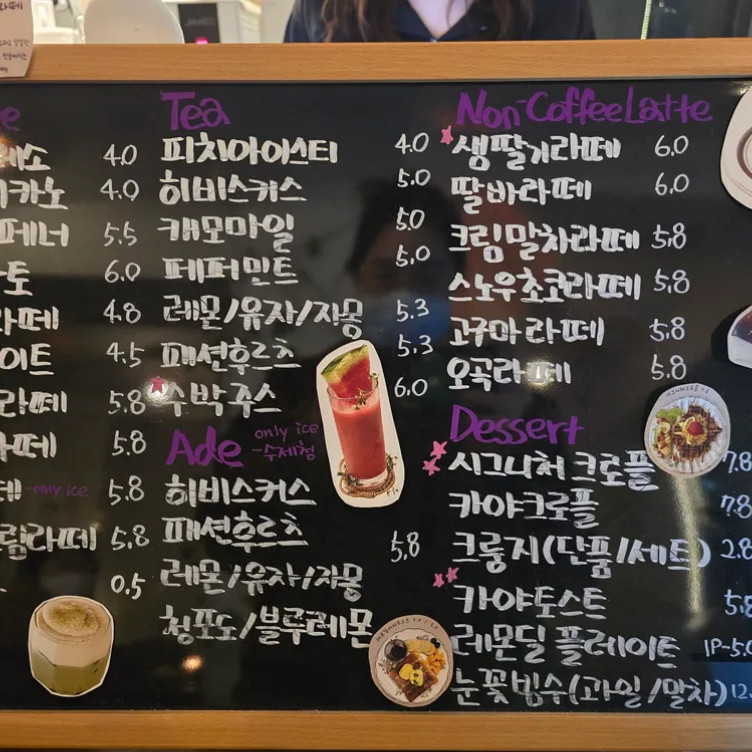 라떼
e
레소 4.0
카노 4.0
페너 5.5
토 6.0
라떼 4.8
이트 4.5
라떼 5.8
라떼 5.8
떼 -only ice 5.8
림라떼 5.8
0.5
Tea
피치아이스티 4.0
히비스커스 5.0
캐모마일 5.0
페퍼민트 5.0
레몬/유자/자몽 5.3
패션후르츠 5.3
수박쥬스 6.0
Ade only ice
-수제청
히비스커스
패션후르츠 5.8
레몬/유자/자몽
청포도/블루레몬
Non-Coffee Latte
생딸기라떼 6.0
딸바라떼 6.0
크림말차라떼 5.8
스노우초코라떼 5.8
고구마라떼 5.8
오곡라떼 5.8
Dessert
시그니처 크로플 7.8
카야크로플 7.8
크룽지(단품/세트) 2.8
카야토스트 5.8
레몬딜 플레이트 1P-5.0
눈꽃빙수(과일/말차) 12.